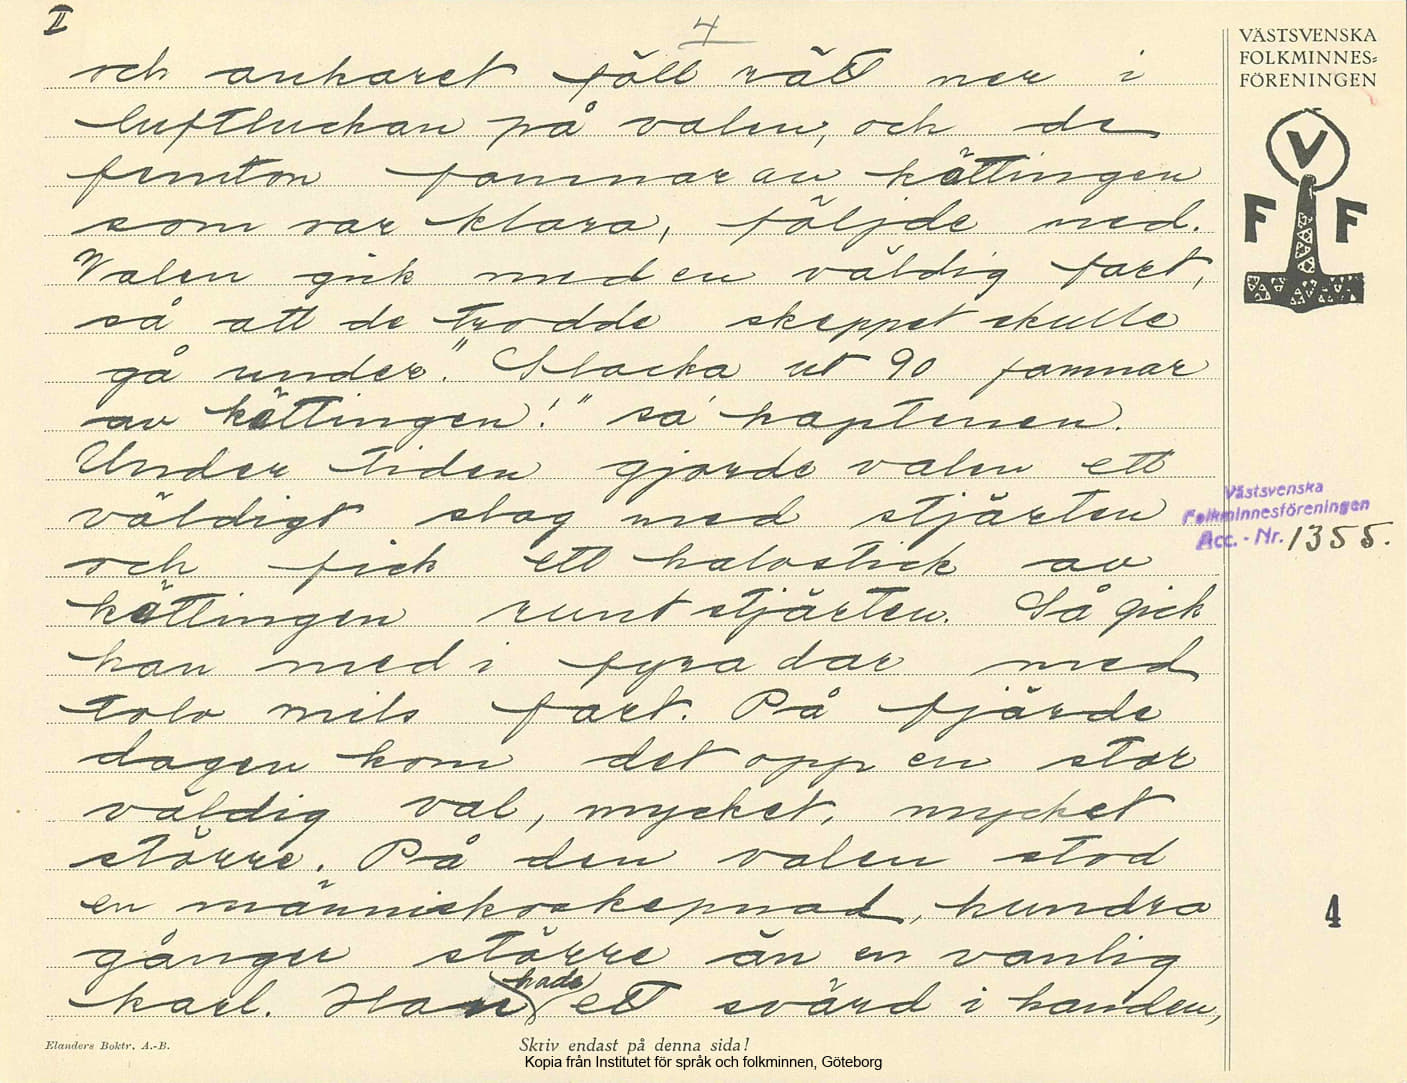 II
4
och ankaret föll rätt ner i
luftluckan på valen, och de
femton famnarau kättingen
som var klara, följde med.
Valen gick med en väldig fart,
så att de trodde skeppet skulle
gå under. "Slacka ut 90 famnar
av kättingen!" sa' kaptenen.
Under tiden gjorde valen ett
väldigt slag med stjärten
och fick ett halvstick av
kättingen runt stjärten. Så gick
han med i fyra dar med
tolv mils fart. På fjärde
dagen kom det opp en stor
väldig val, mycket, mycket
större. På den valen stod
en människoskepnad, hundra
gånger större än en vanlig
karl. Han hade ett svärd i handen,
VÄSTSVENSKA
FOLKMINNES=
FÖRENINGEN
V
F F
Västsvenska
Folkminnesföreningen
Acc. - Nr. 1355.
4
Elanders Boktr. A.-B.
Skriv endast på denna sida!
Kopia från Institutet för språk och folkminnen, Göteborg